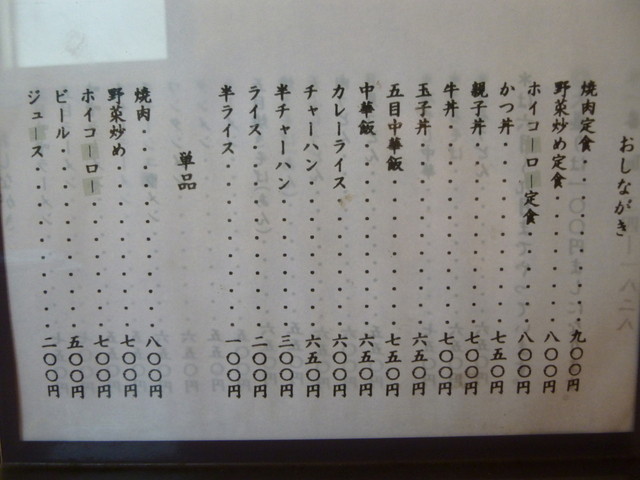 おしながき
焼肉定食・・・・・・・・九〇〇円
野菜炒め定食・・・・・・八〇〇円
ホイコーロー定食・・・・八〇〇円
かつ丼・・・・・・・・・七五〇円
親子丼・・・・・・・・・七〇〇円
牛丼・・・・・・・・・・七〇〇円
玉子丼・・・・・・・・・六五〇円
五目中華飯・・・・・・・七五〇円
中華飯・・・・・・・・・六五〇円
カレーライス・・・・・・六〇〇円
チャーハン・・・・・・・六五〇円
半チャーハン・・・・・・三〇〇円
ライス・・・・・・・・・二〇〇円
半ライス・・・・・・・・一〇〇円
単品
焼肉・・・・・・・・・・八〇〇円
野菜炒め・・・・・・・・七〇〇円
ホイコーロー・・・・・・七〇〇円
ビール・・・・・・・・・五〇〇円
ジュース・・・・・・・・二〇〇円